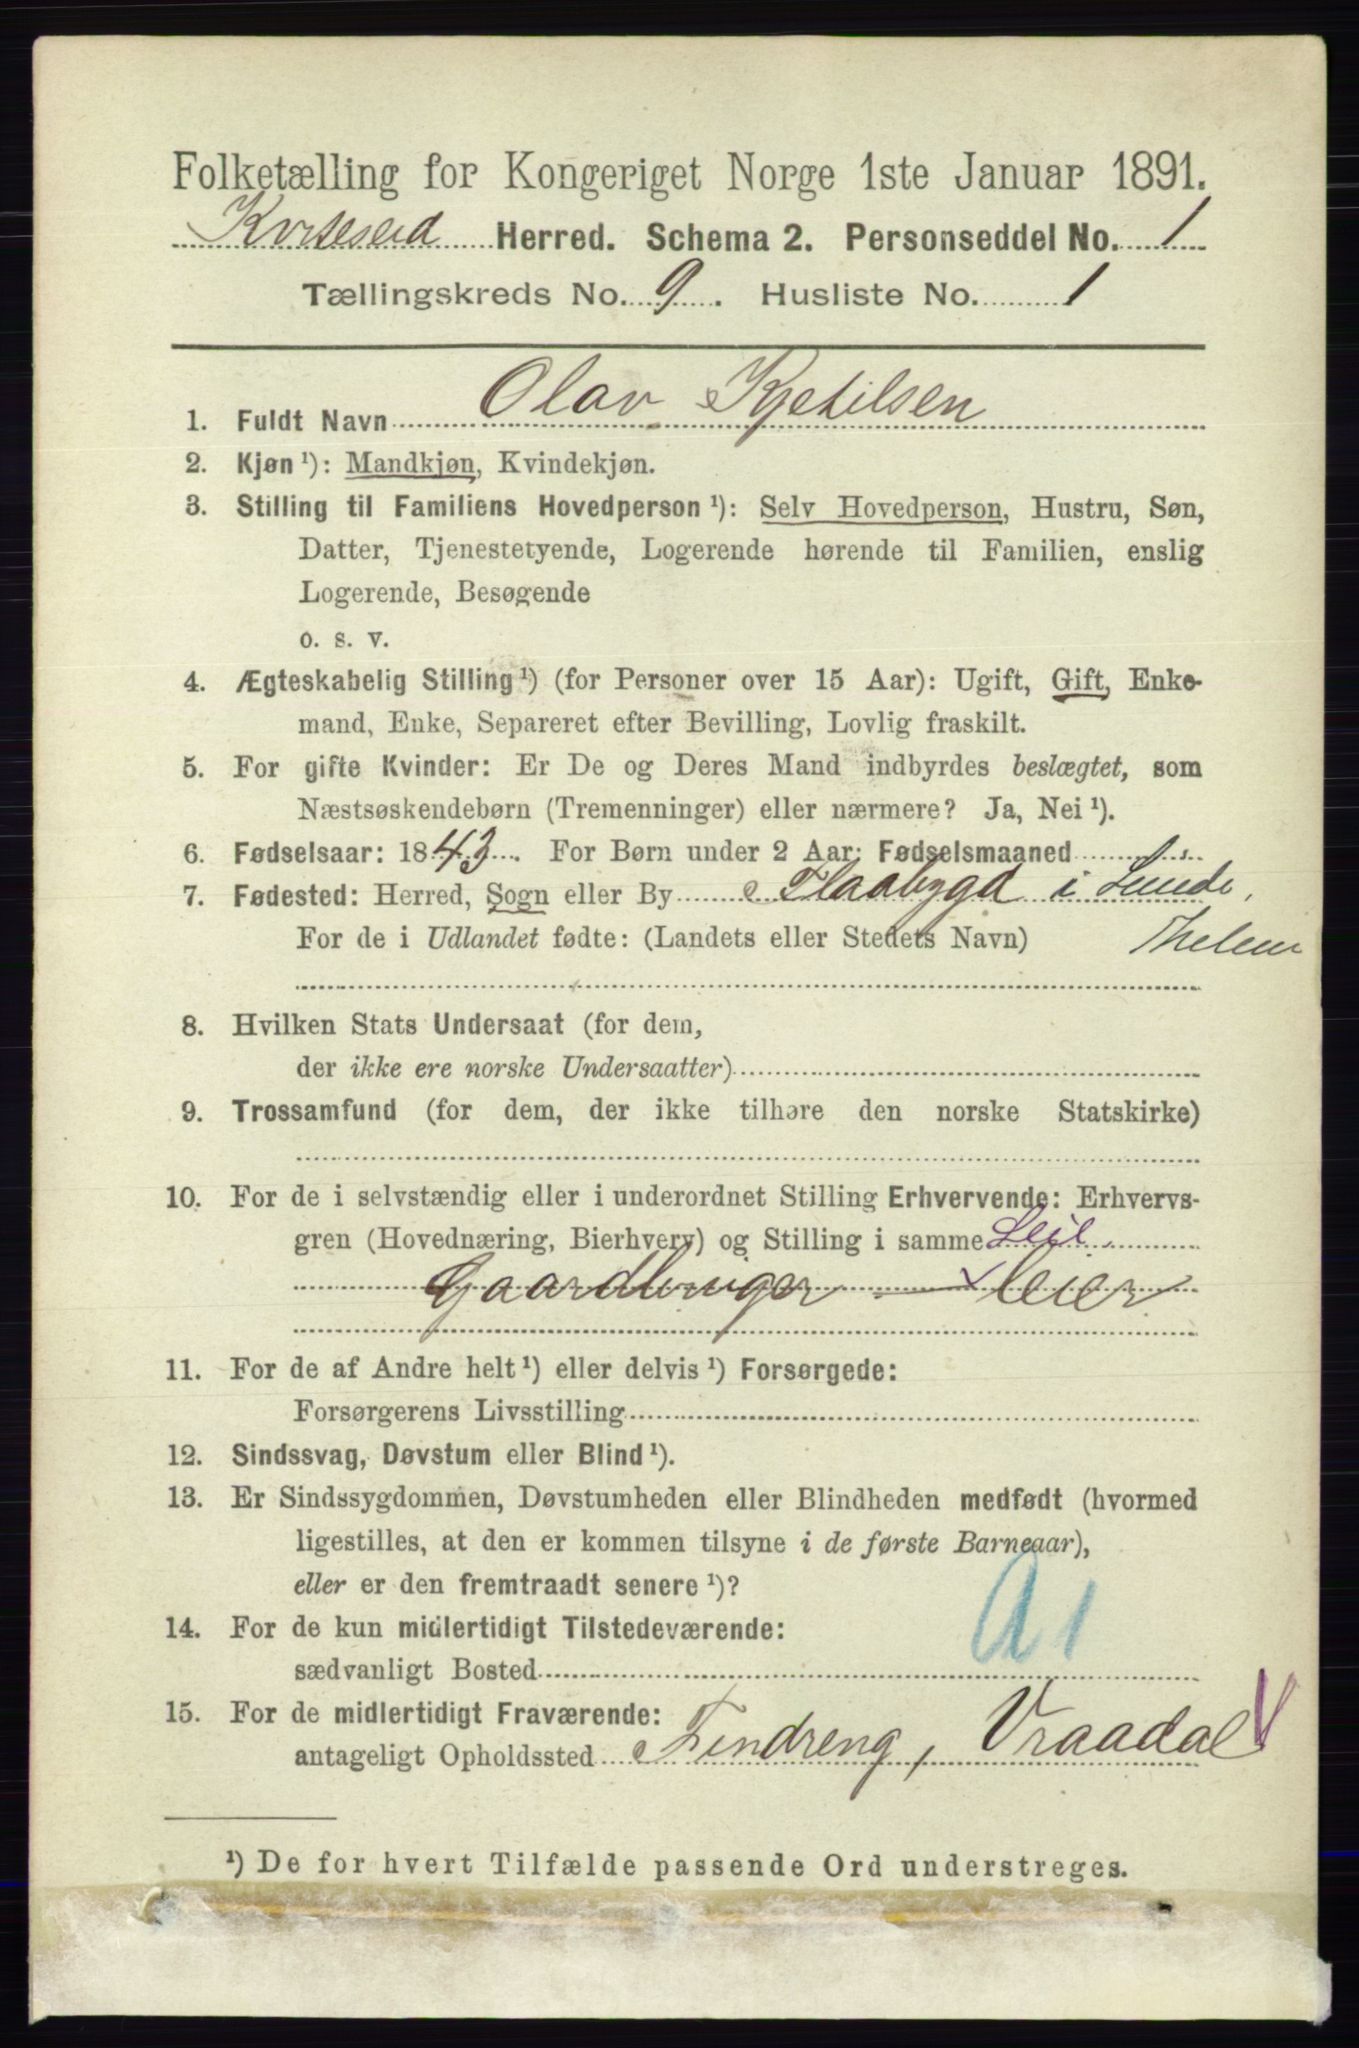 Folketælling for Kongeriget Norge 1ste Januar 1891.
Kviteseid Herred. Schema 2. Personseddel No. 1
Tællingskreds No. 9. Husliste No. 1
1. Fuldt Navn Olav Kjetilsen
2. Kjøn ¹): Mandkjøn, Kvindekjøn.
3. Stilling til Familiens Hovedperson ¹): Selv Hovedperson, Hustru, Søn,
Datter, Tjenestetyende, Logerende hørende til Familien, enslig
Logerende, Besøgende
o. s. v.
4. Ægteskabelig Stilling ¹) (for Personer over 15 Aar): Ugift, Gift, Enke-
mand, Enke, Separeret efter Bevilling, Lovlig fraskilt.
5. For gifte Kvinder: Er De og Deres Mand indbyrdes beslægtet, som
Næstsøskendebørn (Tremenninger) eller nærmere? Ja, Nei ¹).
6. Fødselsaar: 1843. For Børn under 2 Aar: Fødselsmaaned
7. Fødested: Herred, Sogn eller By Flaabygd i Lunde,
For de i Udlandet fødte: (Landets eller Stedets Navn) Thelem
8. Hvilken Stats Undersaat (for dem,
der ikke ere norske Undersaatter)
9. Trossamfund (for dem, der ikke tilhøre den norske Statskirke)
10. For de i selvstændig eller i underordnet Stilling Erhvervende: Erhvervs-
gren (Hovednæring, Bierhverv) og Stilling i samme Leil.
Gaardbruger — leier
11. For de af Andre helt ¹) eller delvis ¹) Forsørgede:
Forsørgerens Livsstilling
12. Sindssvag, Døvstum eller Blind ¹).
13. Er Sindssygdommen, Døvstumheden eller Blindheden medfødt (hvormed
ligestilles, at den er kommen tilsyne i de første Barneaar),
eller er den fremtraadt senere ¹)?
A1
14. For de kun midlertidigt Tilstedeværende:
sædvanligt Bosted
15. For de midlertidigt Fraværende:
antageligt Opholdssted Tindreng, Vraadal
¹) De for hvert Tilfælde passende Ord understreges.